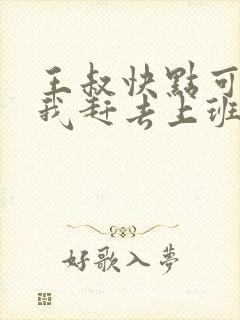 王叔快點可
我赶去上班
好歌入夢